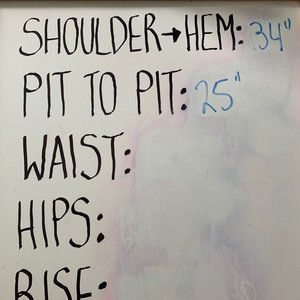 SHOULDER→HEM: 34"
PIT TO PIT: 25"
WAIST:
HIPS:
RISE: